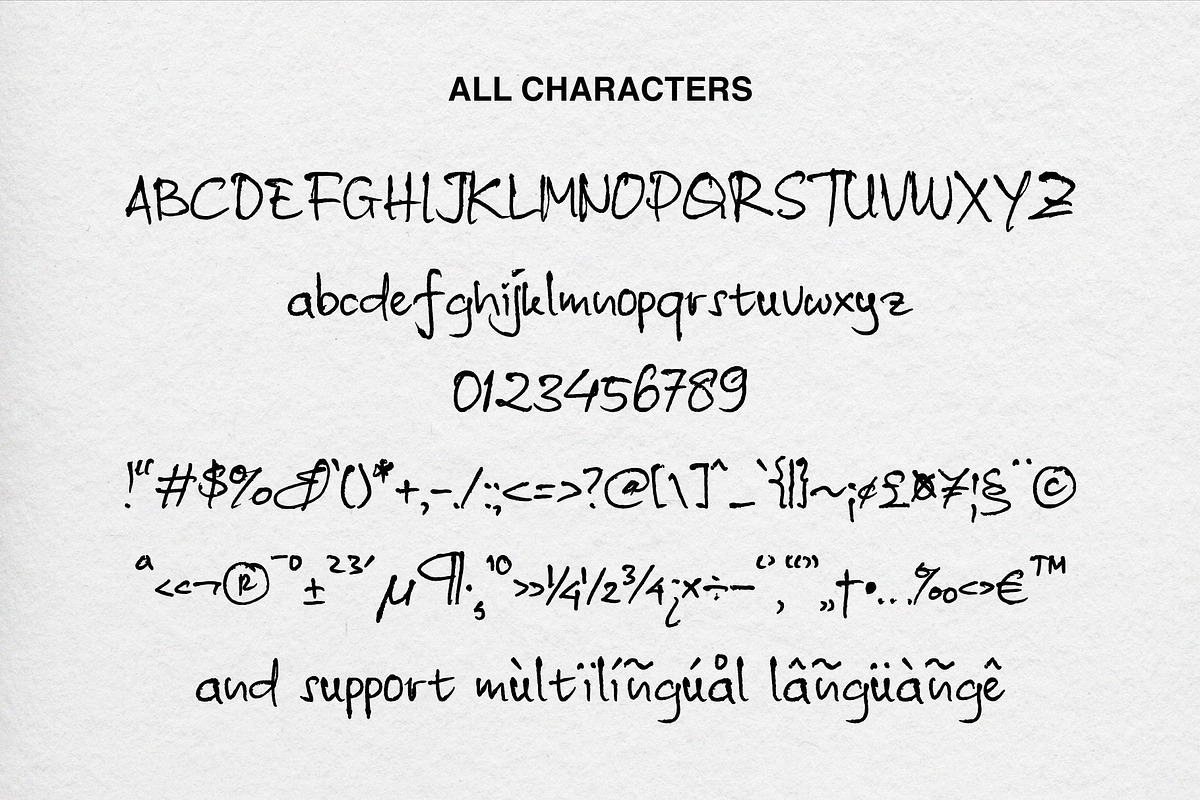 ALL CHARACTERS
ABCDEFGHIJKLMNOPQRSTUVWXYZ
abcdefghijklmnopqrstuvwxyz
0123456789
!"#$%&'()*+,-./:;<=>?@[\]^_`{|}~¡¢£¤¥¦§¨©
ª«¬®¯º±²³´µ¶·¸¹º»¼½¾¿×÷–‘’‚“”„†•…‰‹›€™
and support mùltïlíñgúål lâñgüàñgê